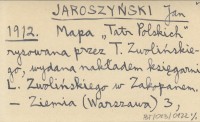 JAROSZYŃSKI Jan
1912. Mapa „Tatr Polskich"
rysowana przez T. Zwolińskie-
go, wydana nakładem księgarni
L. Zwolińskiego w Zakopanem.
— Ziemia (Warszawa) 3,